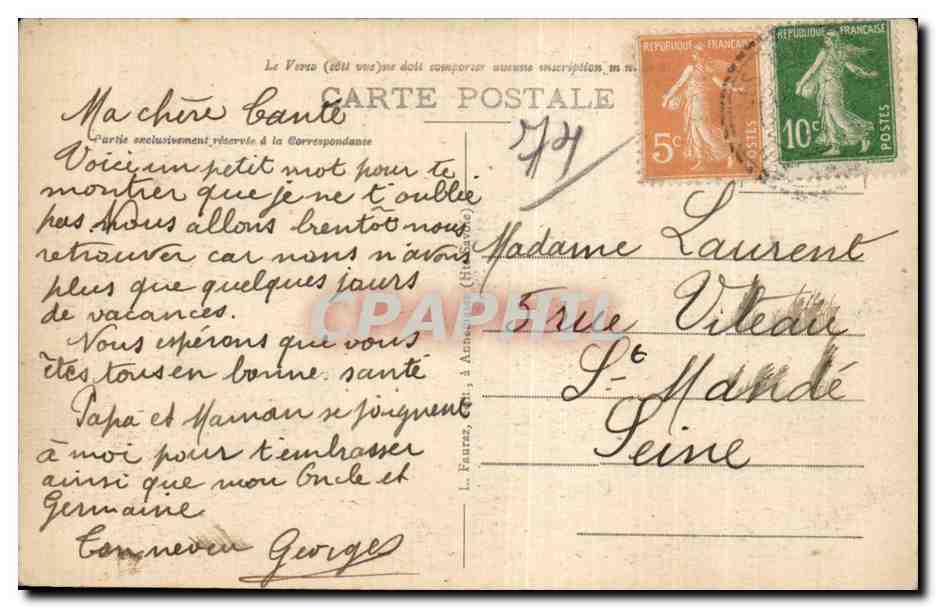 Le Verso (côté vue) ne doit comporter aucune inscription m
CARTE POSTALE
RÉPUBLIQUE FRANÇAISE
5c
POSTES
RÉPUBLIQUE FRANÇAISE
10c
POSTES
74
Ma chère Tante
Partie exclusivement réservée à la Correspondance
Voici un petit mot pour te
montrer que je ne t'oublie
pas. Nous allons bientôt nous
retrouver car nous n'avons
plus que quelques jours
de vacances.
Nous espérons que vous
êtes tous en bonne santé
Papa et Maman se joignent
à moi pour t'embrasser
ainsi que mon Oncle et
Germaine
Ton neveu Georges
L. Fauraz, à Annecy (Hte-Savoie)
Madame Laurent
5 rue Viteau
St Mandé
Seine
CPAPHIL